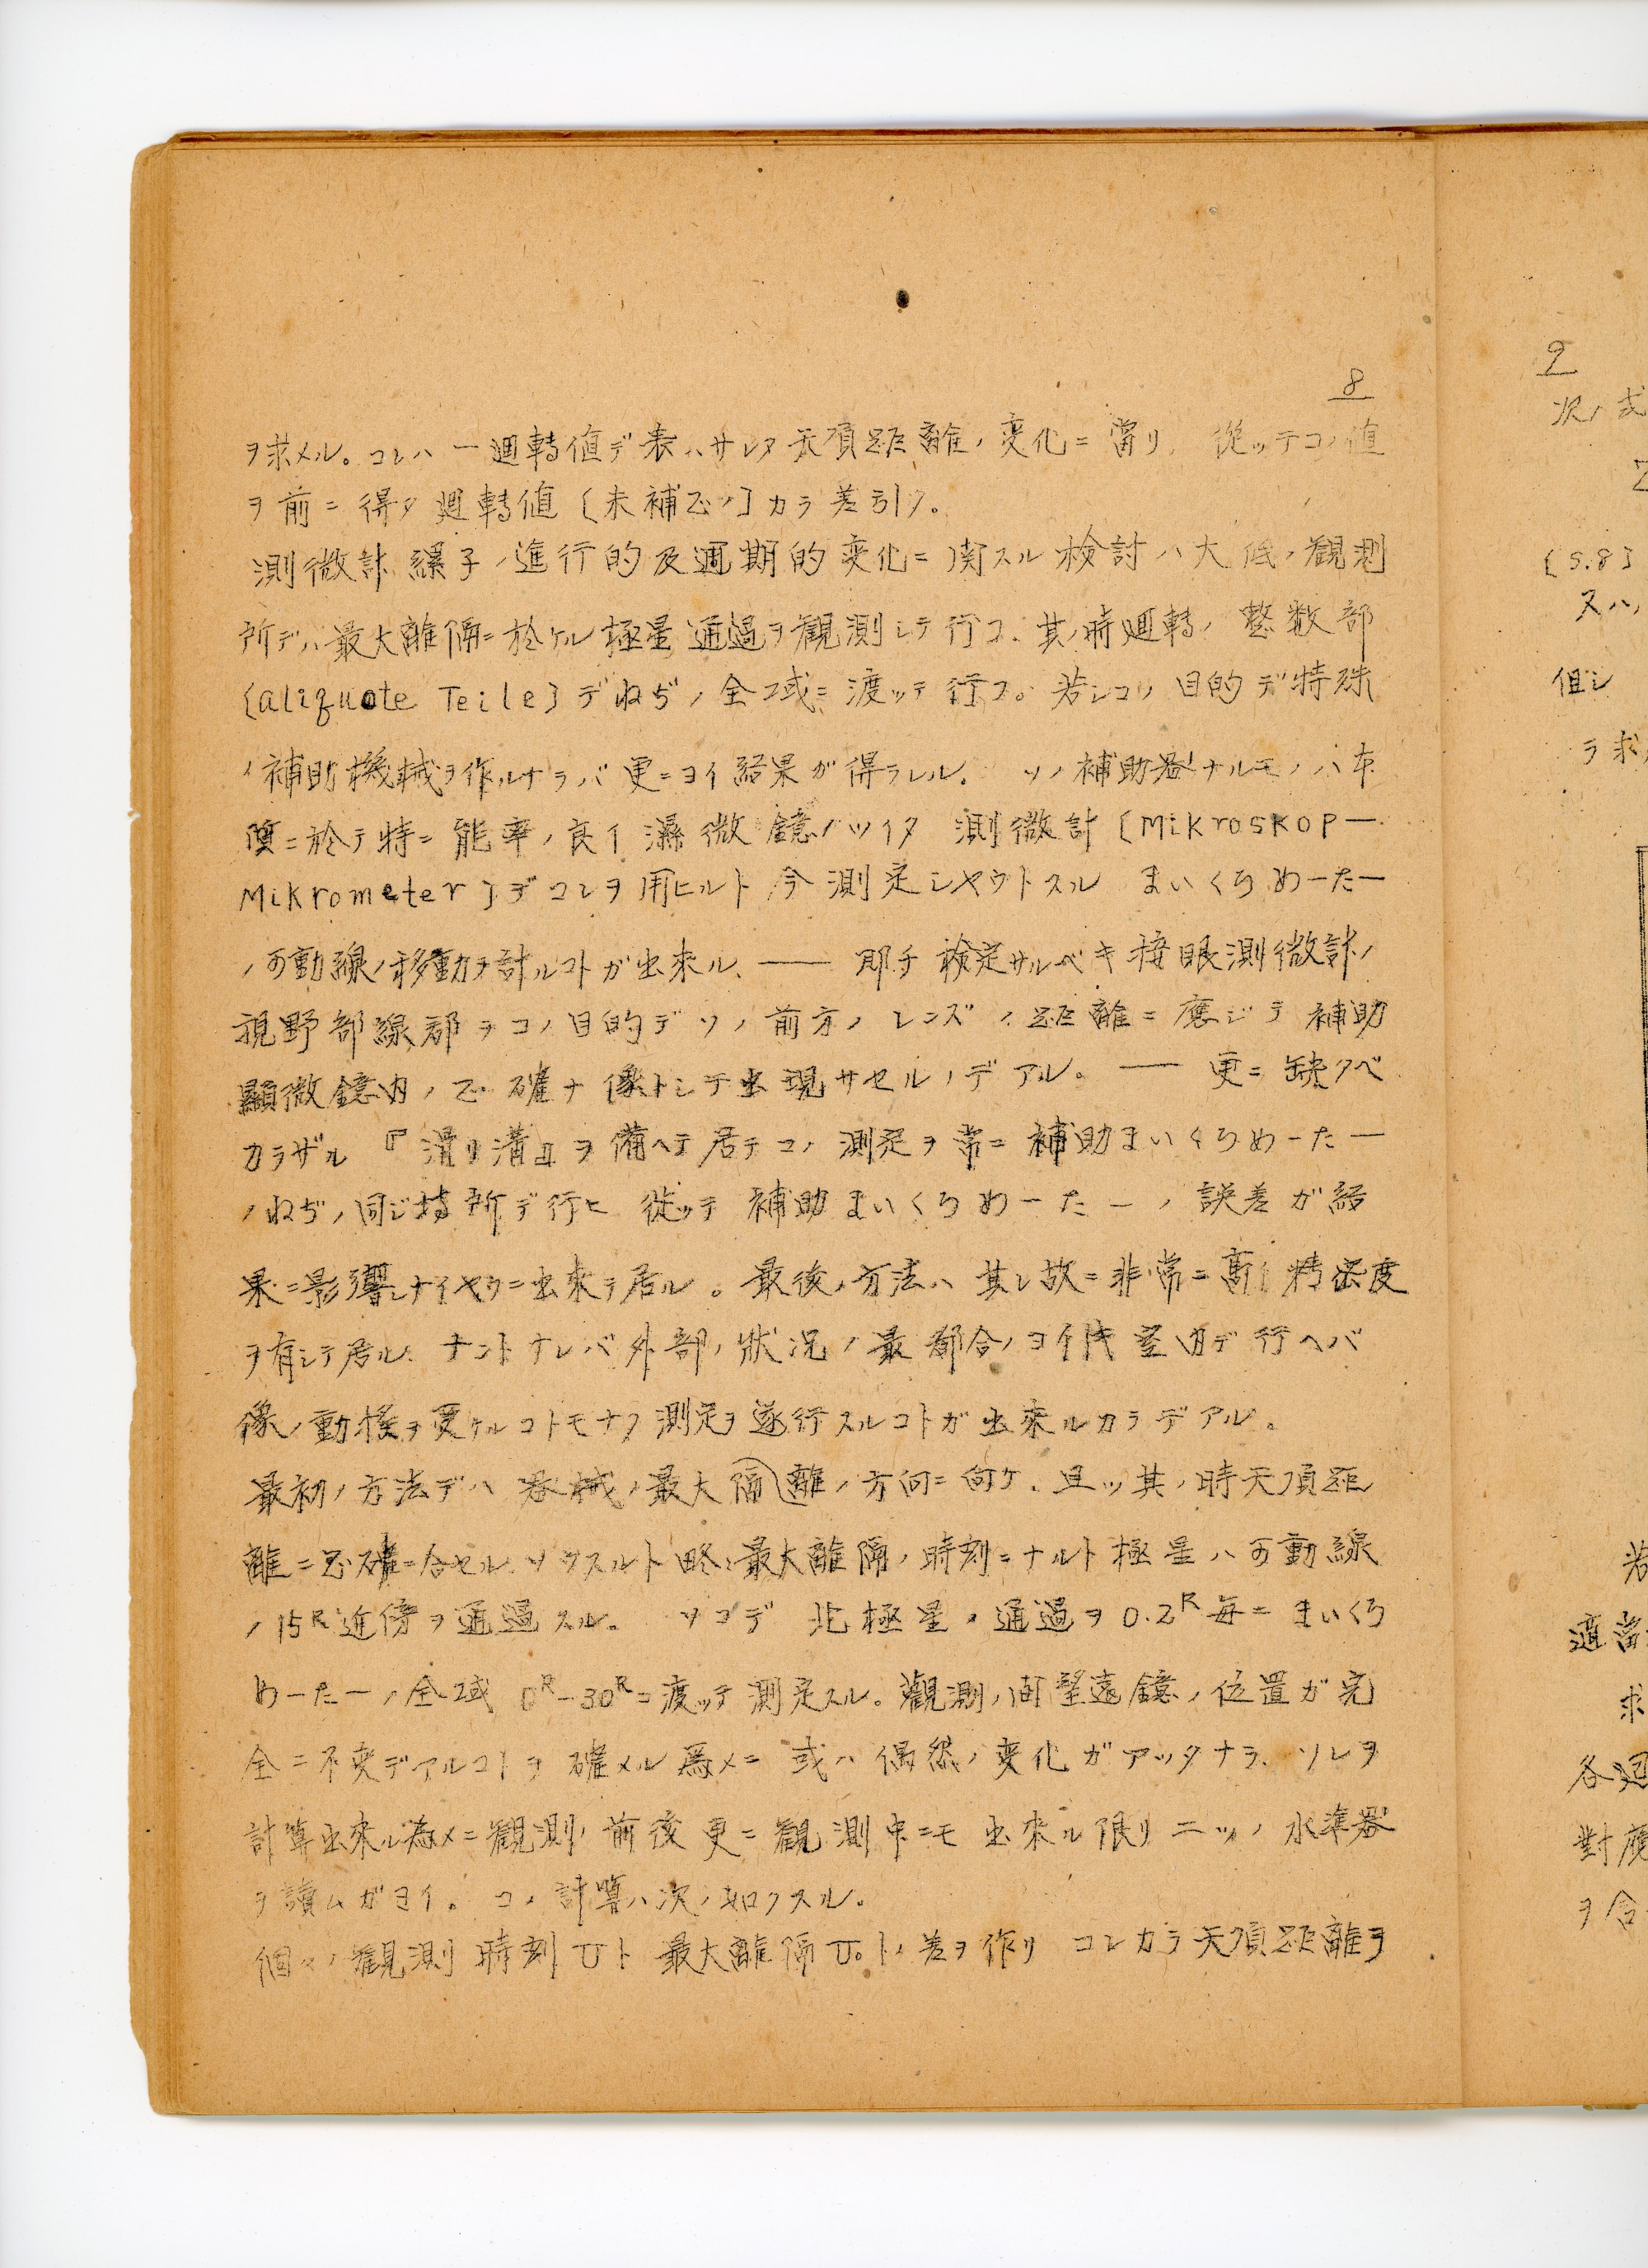 8
ヲ求メル。コレハ一週轉値デ表ハサレタ天頂距離ノ変化ニ當リ、從ッテコノ値
ヲ前ニ得タ週轉値〔未補正ノ〕カラ差引ク。
測微計螺子ノ進行的及週期的変化ニ関スル検討ハ大低ノ観測
所デハ最大離隔ニ於ケル極星通過ヲ観測シテ行フ、其ノ時週轉ノ整数部
〔aliquote Teile〕デねぢノ全域ニ渡ッテ行フ。若シコノ目的デ特殊
ノ補助機械ヲ作ルナラバ更ニヨイ結果ガ得ラレル。ソノ補助器ナルモノハ本
質ニ於テ特ニ能率ノ良イ顕微鏡ノツイタ測微計〔Mikroskop—
Mikrometer〕デコレヲ用ヒルト今測定シヤウトスルまいくろめーたー
ノ可動線ノ移動ヲ計ルコトガ出來ル、—— 即チ検定サルベキ接眼測微計ノ
視野部線郡ヲコノ目的デソノ前方ノレンズノ距離ニ應ジテ補助
顯微鏡内ノ正確ナ像トシテ出現サセルノデアル。—— 更ニ缺クベ
カラザル『滑リ溝』ヲ備ヘテ居テコノ測定ヲ常ニ補助まいくろめーたー
ノねぢノ同ジ場所デ行ヒ從ッテ補助まいくろめーたーノ誤差ガ結
果ニ影響シナイヤウニ出來テ居ル。最後ノ方法ハ其レ故ニ非常ニ高イ精密度
ヲ有シテ居ル、ナントナレバ外部ノ狀況ノ最都合ノヨイ時室内デ行ヘバ
像ノ動揺ヲ受ケルコトモナク測定ヲ遂行スルコトガ出來ルカラデアル。
最初ノ方法デハ器械ノ最大隔離ノ方向ニ向ケ、且ツ其ノ時天頂距
離ニ正確ニ合セル、ソウスルト略々最大離隔ノ時刻ニナルト極星ハ可動線
ノ15ᴿ近傍ヲ通過スル。ソコデ北極星ノ通過ヲ0.2ᴿ毎ニまいくろ
めーたーノ全域0ᴿ—30ᴿニ渡ッテ測定スル。觀測ノ間望遠鏡ノ位置ガ完
全ニ不変デアルコトヲ確メル爲メニ或ハ偶然ノ変化ガアッタナラ、ソレヲ
計算出來ル為メニ観測ノ前後更ニ観測中ニモ出來ル限リ二ツノ水準器
ヲ讀ムガヨイ。コノ計算ハ次ノ如クスル。
個々ノ観測時刻Uト最大離隔U₀トノ差ヲ作リコレカラ天頂距離ヲ
9
次ノ式
〔5.8〕
又ハ
但シ
ヲ求
若
適當
求
各週
對應
ヲ含